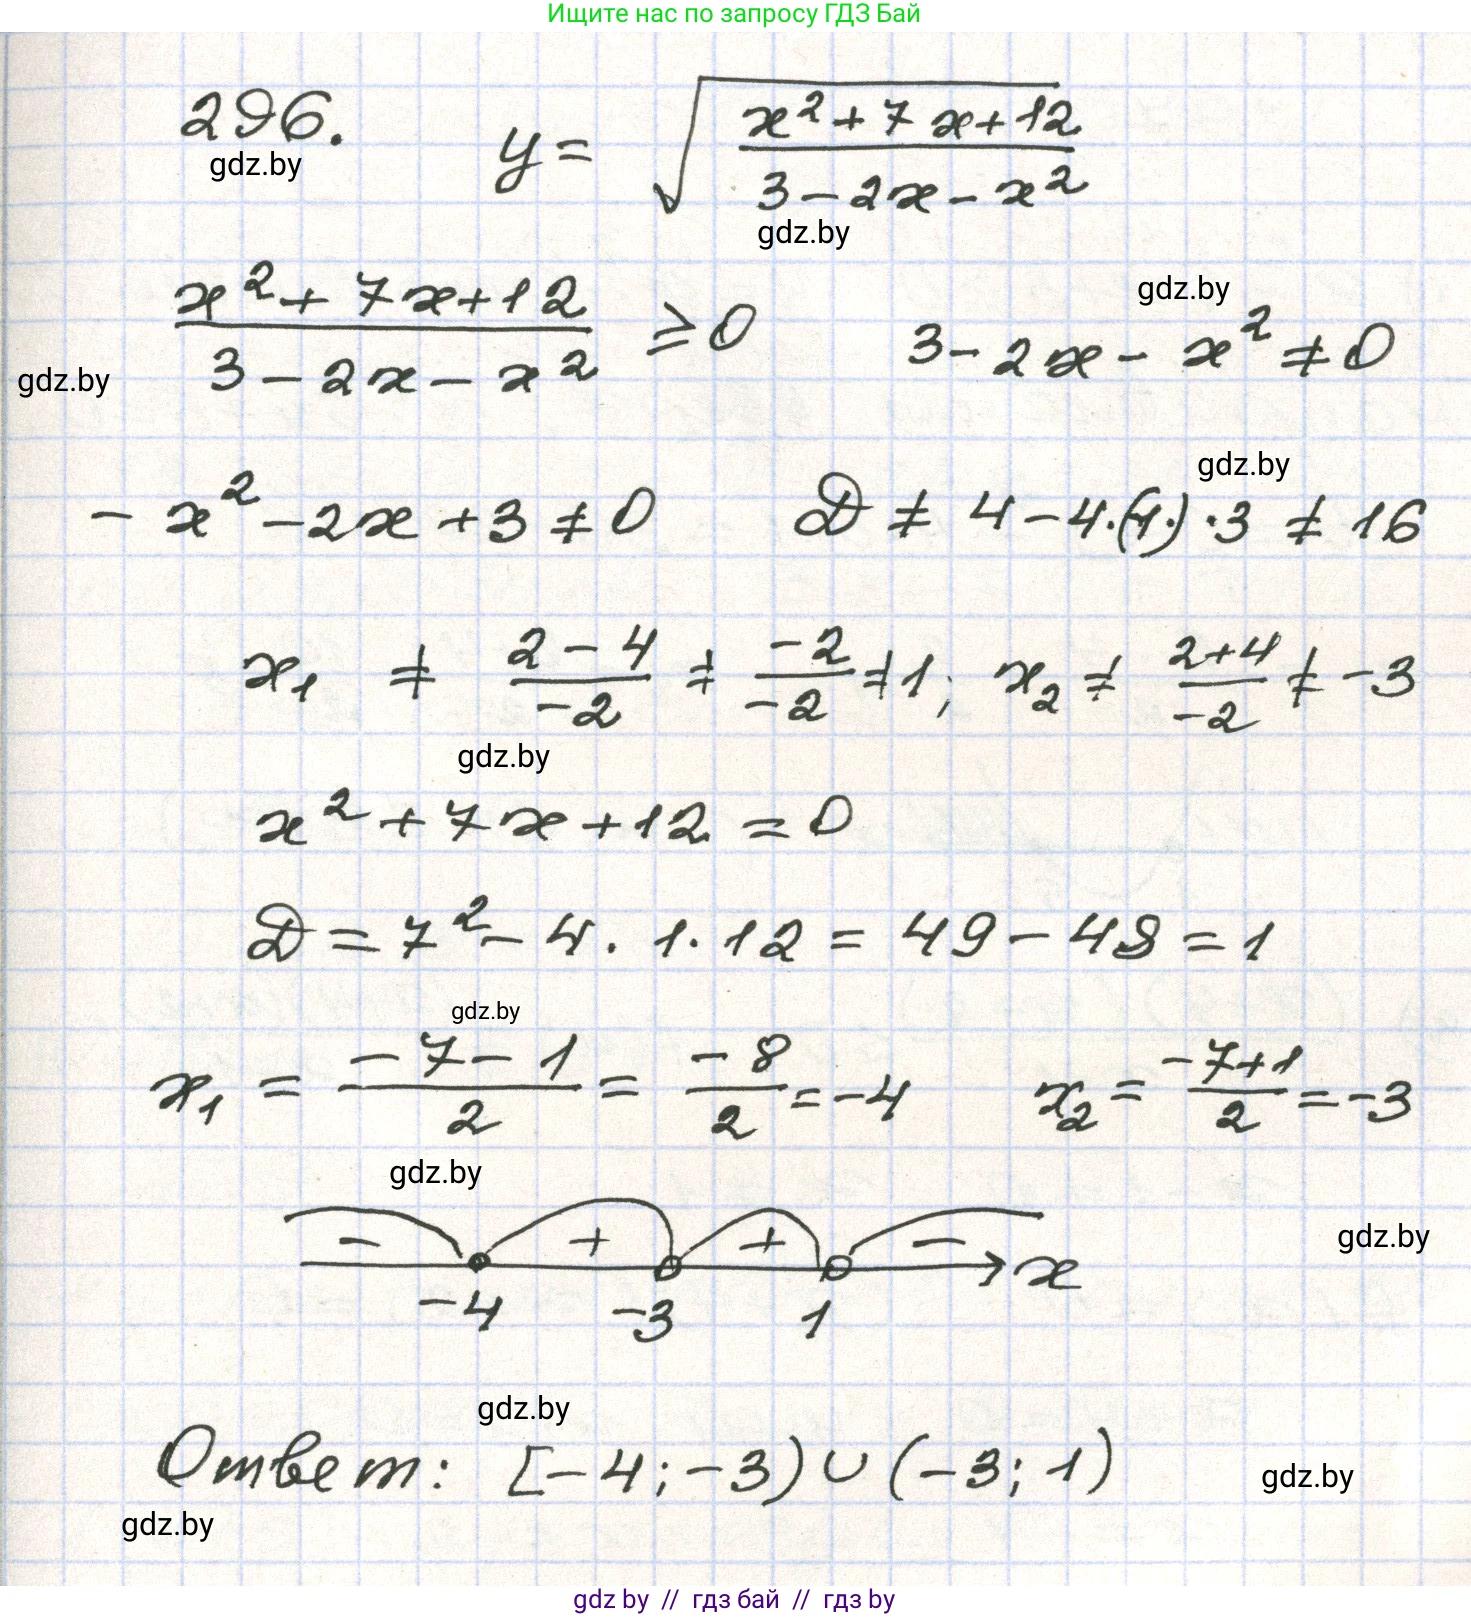 Ищите нас по запросу ГДЗ Бай
296. y = √((x² + 7x + 12)/(3 − 2x − x²))
gdz.by
gdz.by
(x² + 7x + 12)/(3 − 2x − x²) ≥ 0 3 − 2x − x² ≠ 0
gdz.by
gdz.by
− x² − 2x + 3 ≠ 0 D ≠ 4 − 4·(-1)·3 ≠ 16
gdz.by
x₁ ≠ (2 − 4)/(−2) ≠ (−2)/(−2) ≠ 1; x₂ ≠ (2+4)/(−2) ≠ −3
gdz.by
x² + 7x + 12 = 0
D = 7² − 4 · 1 · 12 = 49 − 48 = 1
gdz.by
x₁ = (−7 − 1)/2 = (−8)/2 = −4 x₂ = (−7+1)/2 = −3
gdz.by
− + + − x
gdz.by
−4 −3 1
gdz.by
Ответ: [−4; −3) ∪ (−3; 1)
gdz.by
gdz.by
gdz by // гдз бай // гдз by